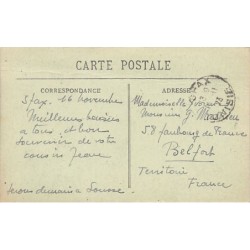 CARTE POSTALE
CORRESPONDANCE
Sfax, 16 novembre
Meilleurs baisers
à tous et bon
souvenir de votre
cousin
ADRESSE
Mademoiselle Yvonne
Monsieur G.
58 faubourg de France
Belfort
Territoire
France
Serons demain à Sousse
SFAX